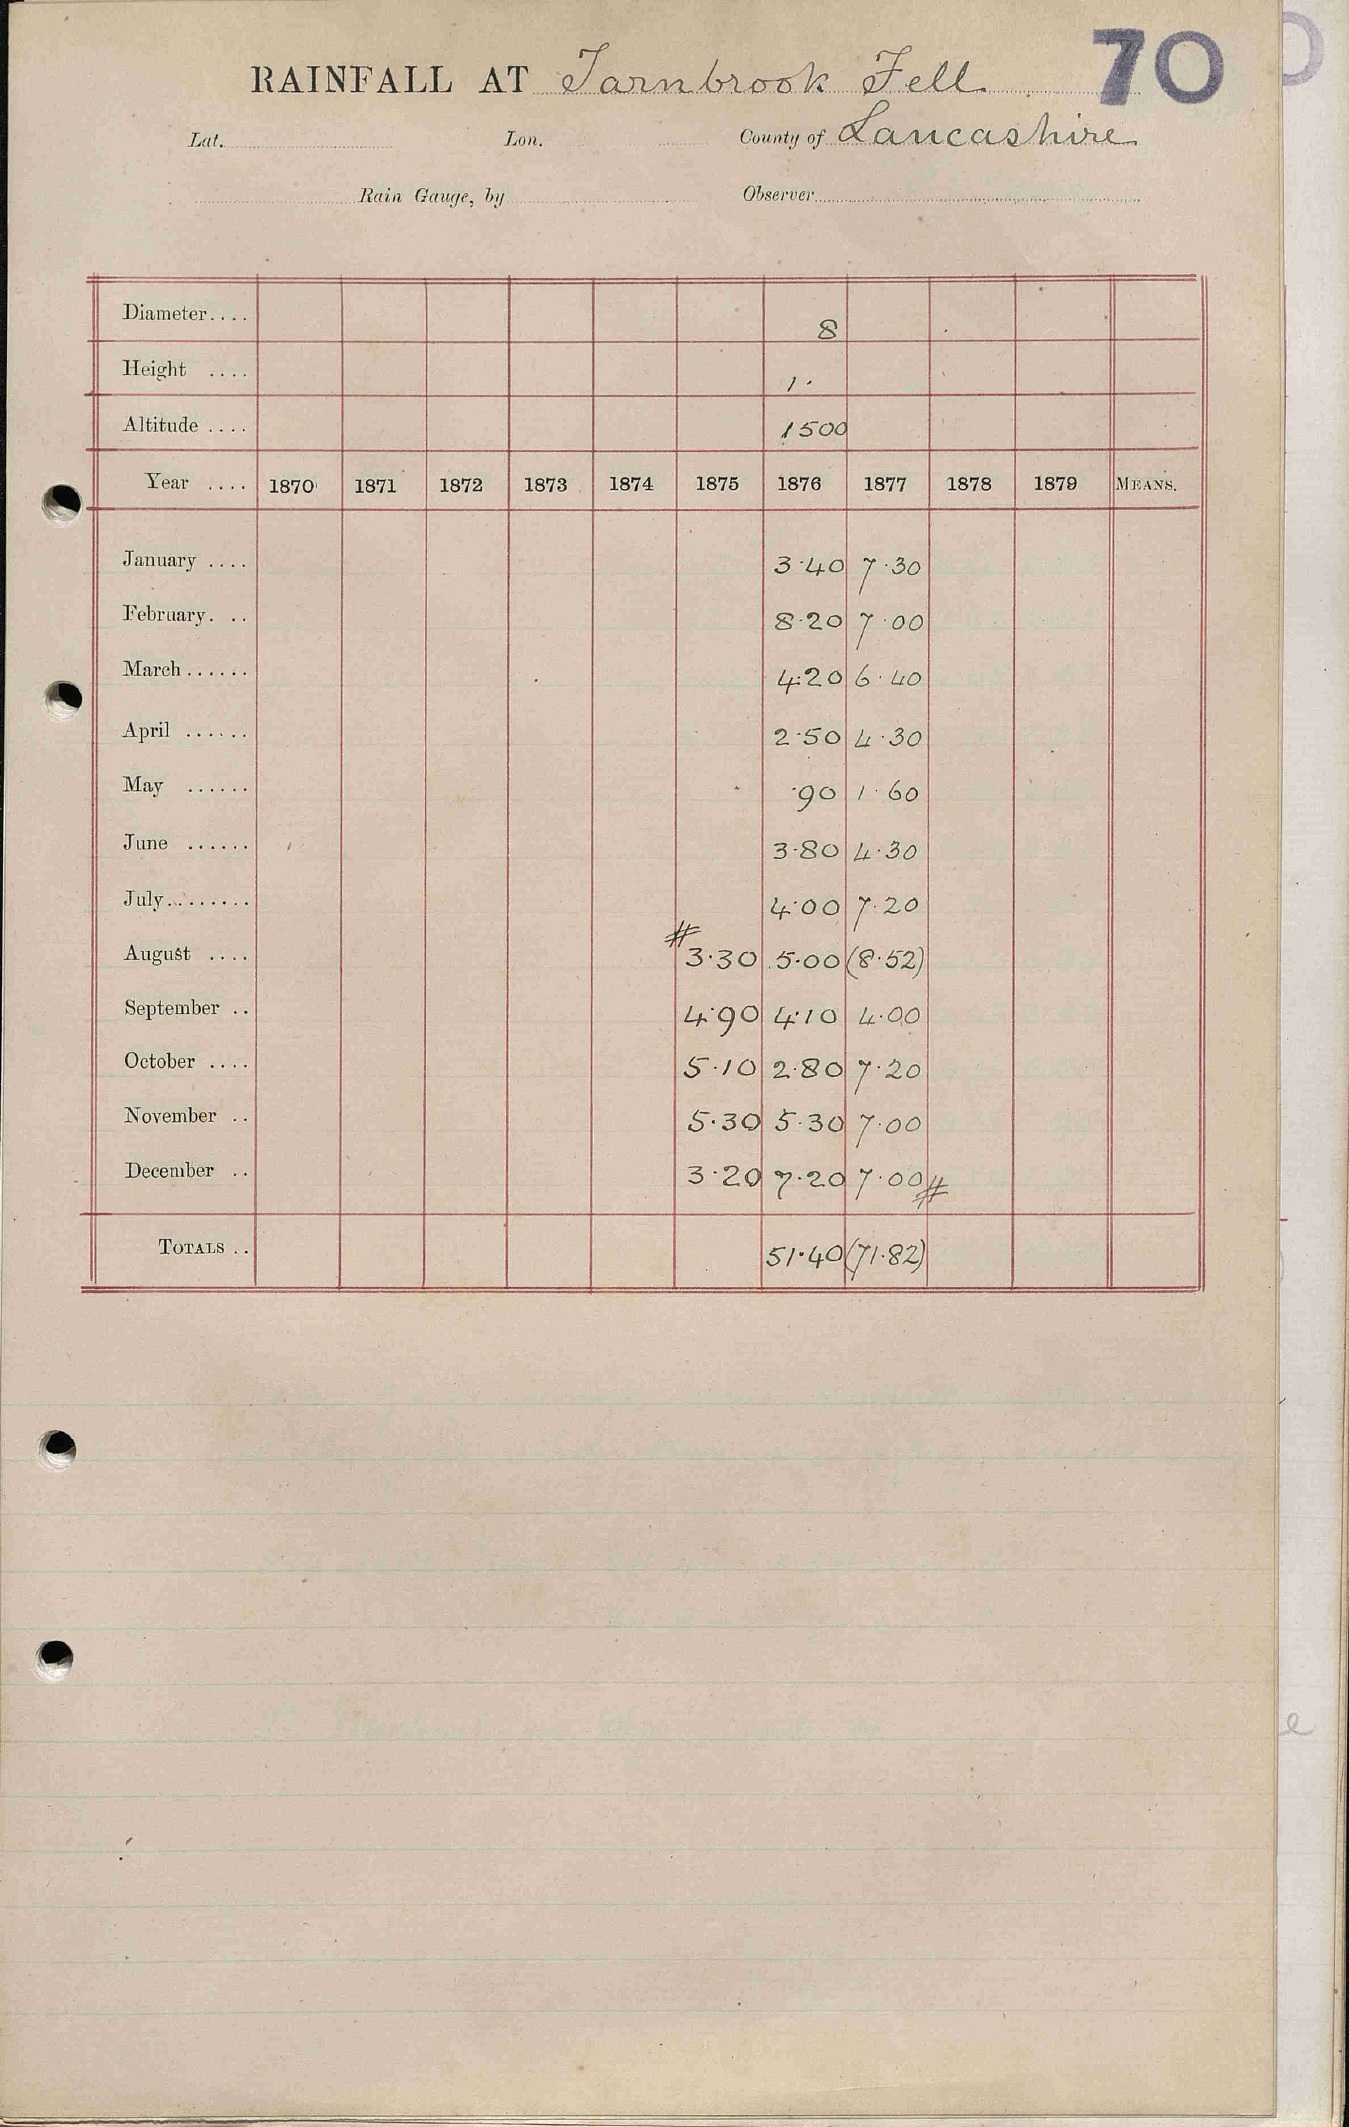 70
RAINFALL AT Tarnbrook Fell
Lat. Lon. County of Lancashire
Rain Gauge, by Observer
Diameter.... 8
Height .... 1.
Altitude .... 1500
Year .... 1870 1871 1872 1873 1874 1875 1876 1877 1878 1879 MEANS.
January .... 3.40 7.30
February. .. 8.20 7.00
March...... 4.20 6.40
April ...... 2.50 4.30
May ...... .90 1.60
June ...... 3.80 4.30
July........ 4.00 7.20
August .... # 3.30 5.00 (8.52)
September .. 4.90 4.10 4.00
October .... 5.10 2.80 7.20
November .. 5.30 5.30 7.00
December .. 3.20 7.20 7.00 #
TOTALS .. 51.40 (71.82)